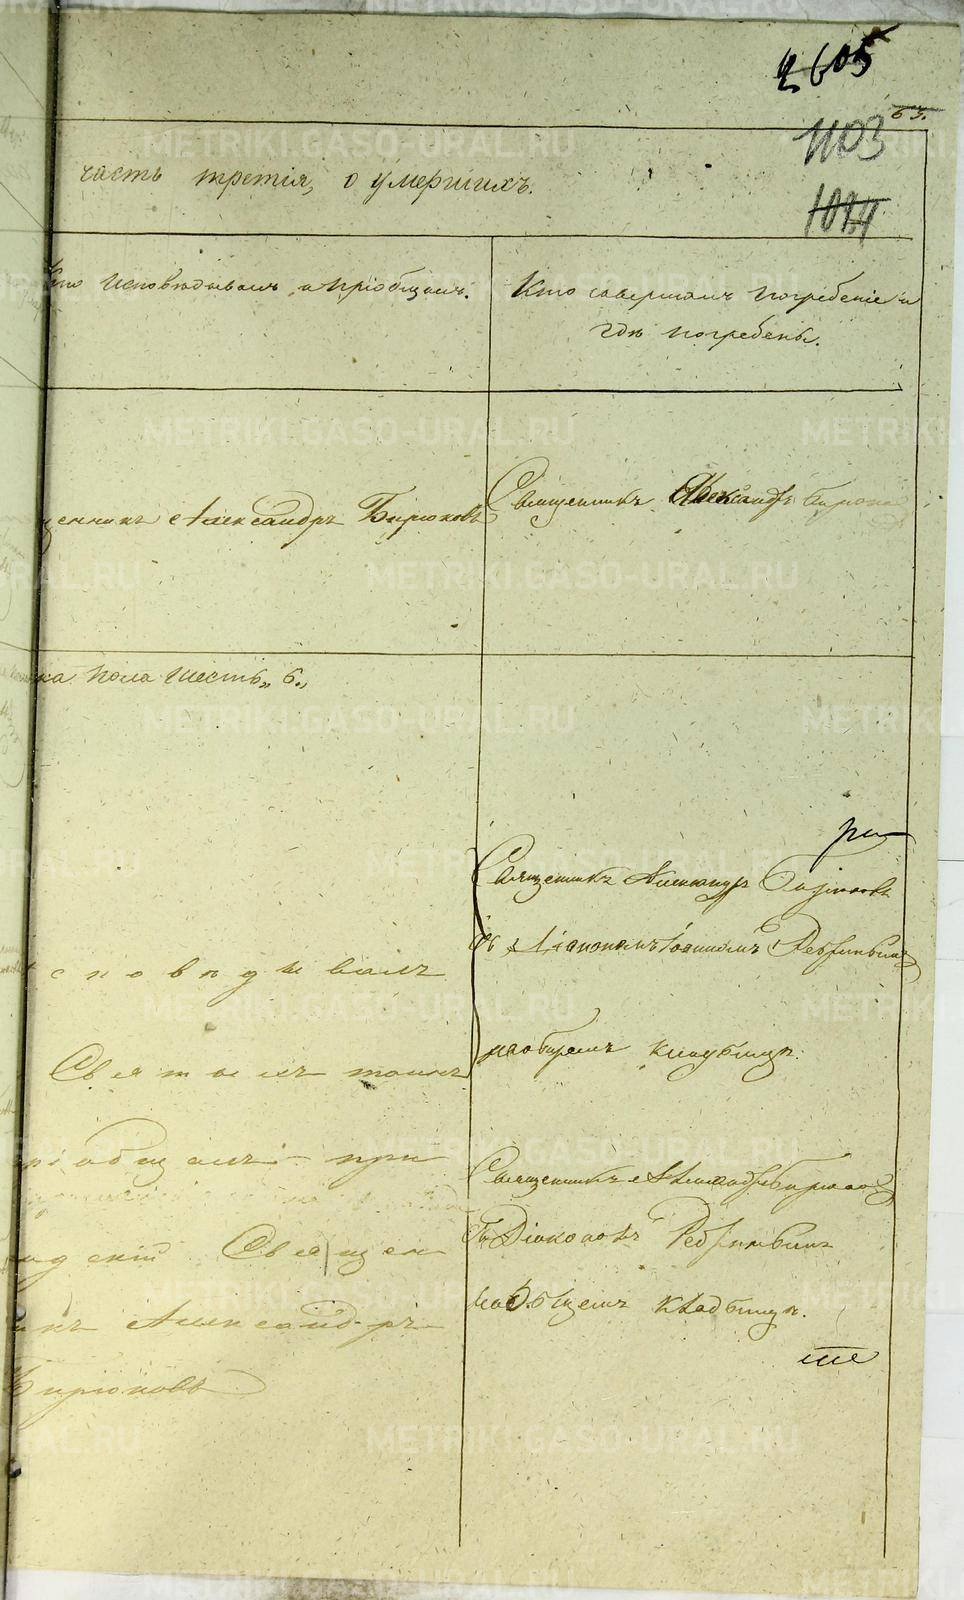 2605
63.
1103
часть третія, о умершихъ.
Кто исповѣдывалъ и пріобщалъ.
Кто совершалъ погребеніе и
гдѣ погребены.
щенникъ Александръ Бирюковъ
Священникъ Александръ Бирюков
ка пола шесть „6.„
Священникъ Александръ Бирюковъ
съ Діакономъ Іоанномъ
на общемъ кладбищѣ.
споведывалъ
Святыхъ таинъ
ріобщалъ при
Священ
икъ Александръ
Бирюковъ
Священникъ Александръ Бирюков
съ Діакономъ
на общемъ кладбищѣ.
METRIKI.GASO-URAL.RU